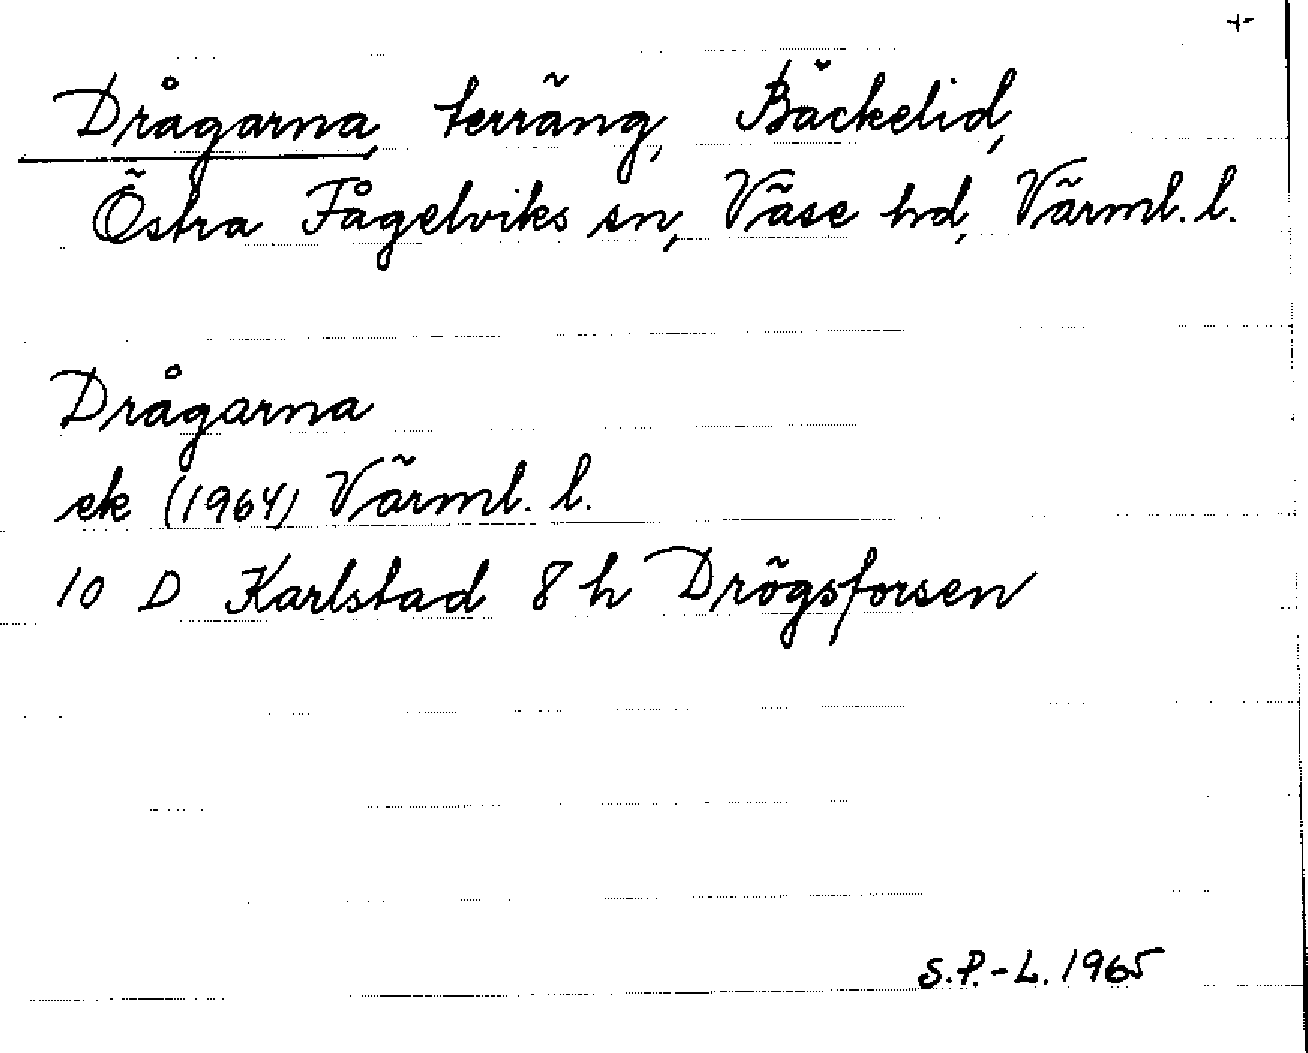 +
Drågarna, terräng, Bäckelid,
Östra Fågelviks sn, Väse hd, Värml. l.
Drågarna
ek (1964) Värml. l.
10 D Karlstad 8 h Drögsforsen
S.P.-L. 1965